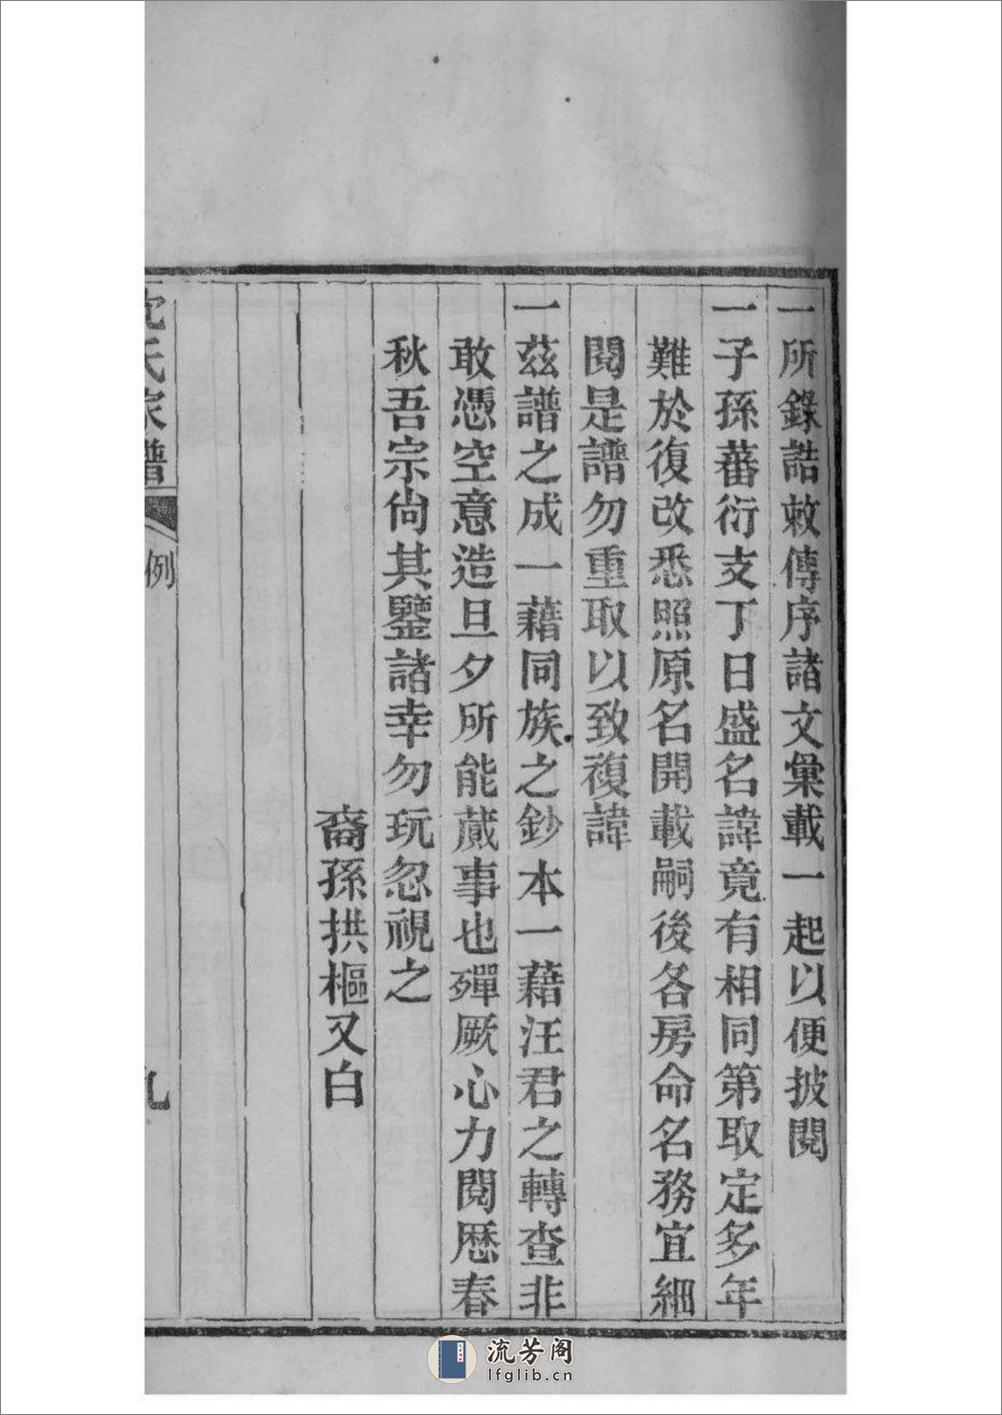 一所錄誥敕傳序諸文彙載一起以便披閱
一子孫蕃衍支丁日盛名諱竟有相同第取定多年
難於復改悉照原名開載嗣後各房命名務宜細
閱是譜勿重取以致複諱
一茲譜之成一藉同族之鈔本一藉汪君之轉查非
敢憑空意造旦夕所能蕆事也殫厥心力閱歷春
秋吾宗尙其鑒諸幸勿玩忽視之
裔孫拱樞又白
沈氏家譜
例
九
流芳阁
lfglib.cn